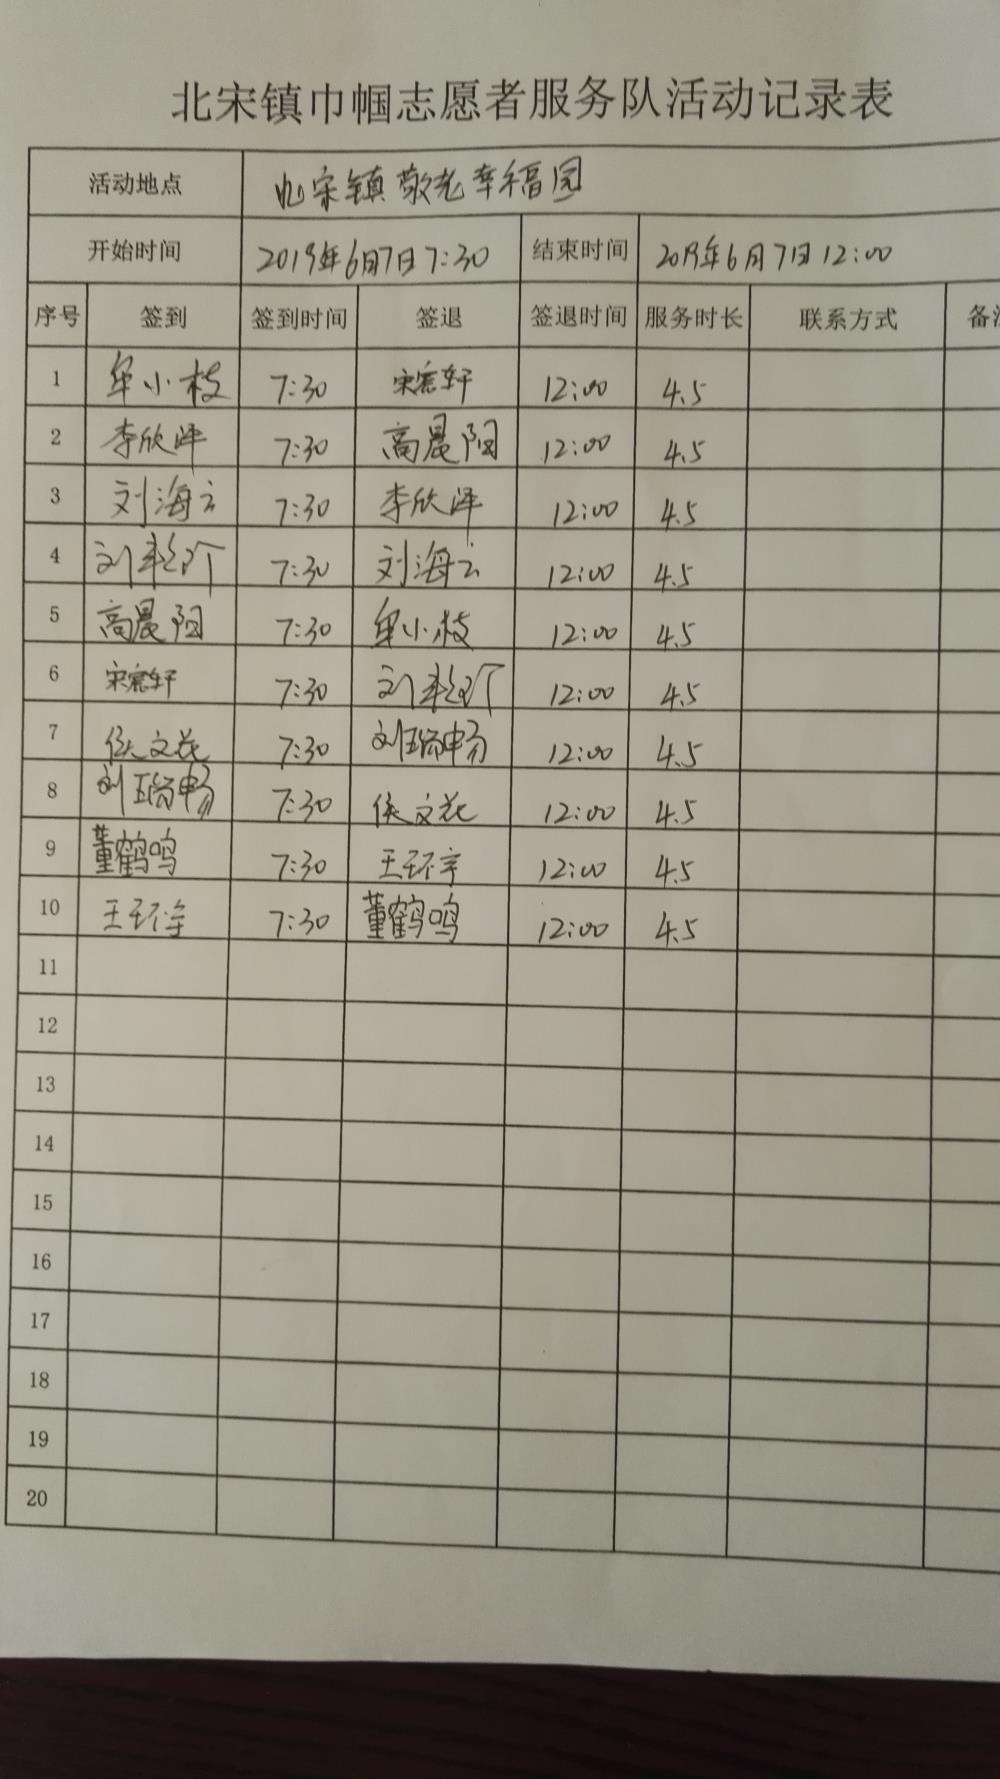 北宋镇巾帼志愿者服务队活动记录表
活动地点 北宋镇敬老幸福园
开始时间 2019年6月7日7:30 结束时间 2019年6月7日12:00
序号 签到 签到时间 签退 签退时间 服务时长 联系方式 备注
1 牟小枝 7:30 宋宪轩 12:00 4.5
2 李欣泽 7:30 高晨阳 12:00 4.5
3 刘海云 7:30 李欣泽 12:00 4.5
4 刘 7:30 刘海云 12:00 4.5
5 高晨阳 7:30 牟小枝 12:00 4.5
6 宋宪轩 7:30 刘 12:00 4.5
7 侯文花 7:30 刘瑞畅 12:00 4.5
8 刘瑞畅 7:30 侯文花 12:00 4.5
9 董鹤鸣 7:30 王环宇 12:00 4.5
10 王环宇 7:30 董鹤鸣 12:00 4.5
11
12
13
14
15
16
17
18
19
20